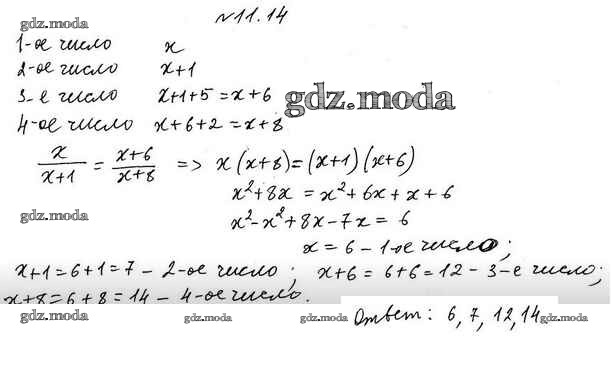 №11.14
gdz.moda
1-ое число x
2-ое число x+1
3-е число x+1+5=x+6
gdz.moda
4-ое число x+6+2=x+8
x/(x+1) = (x+6)/(x+8) => x(x+8)=(x+1)(x+6)
x²+8x=x²+6x+x+6
gdz.moda
x²-x²+8x-7x=6
x=6-1-ое число;
x+1=6+1=7-2-ое число; x+6=6+6=12-3-е число;
x+8=6+8=14-4-ое число.
Ответ: 6,7,12,14
gdz.moda gdz.moda gdz.moda gdz.moda